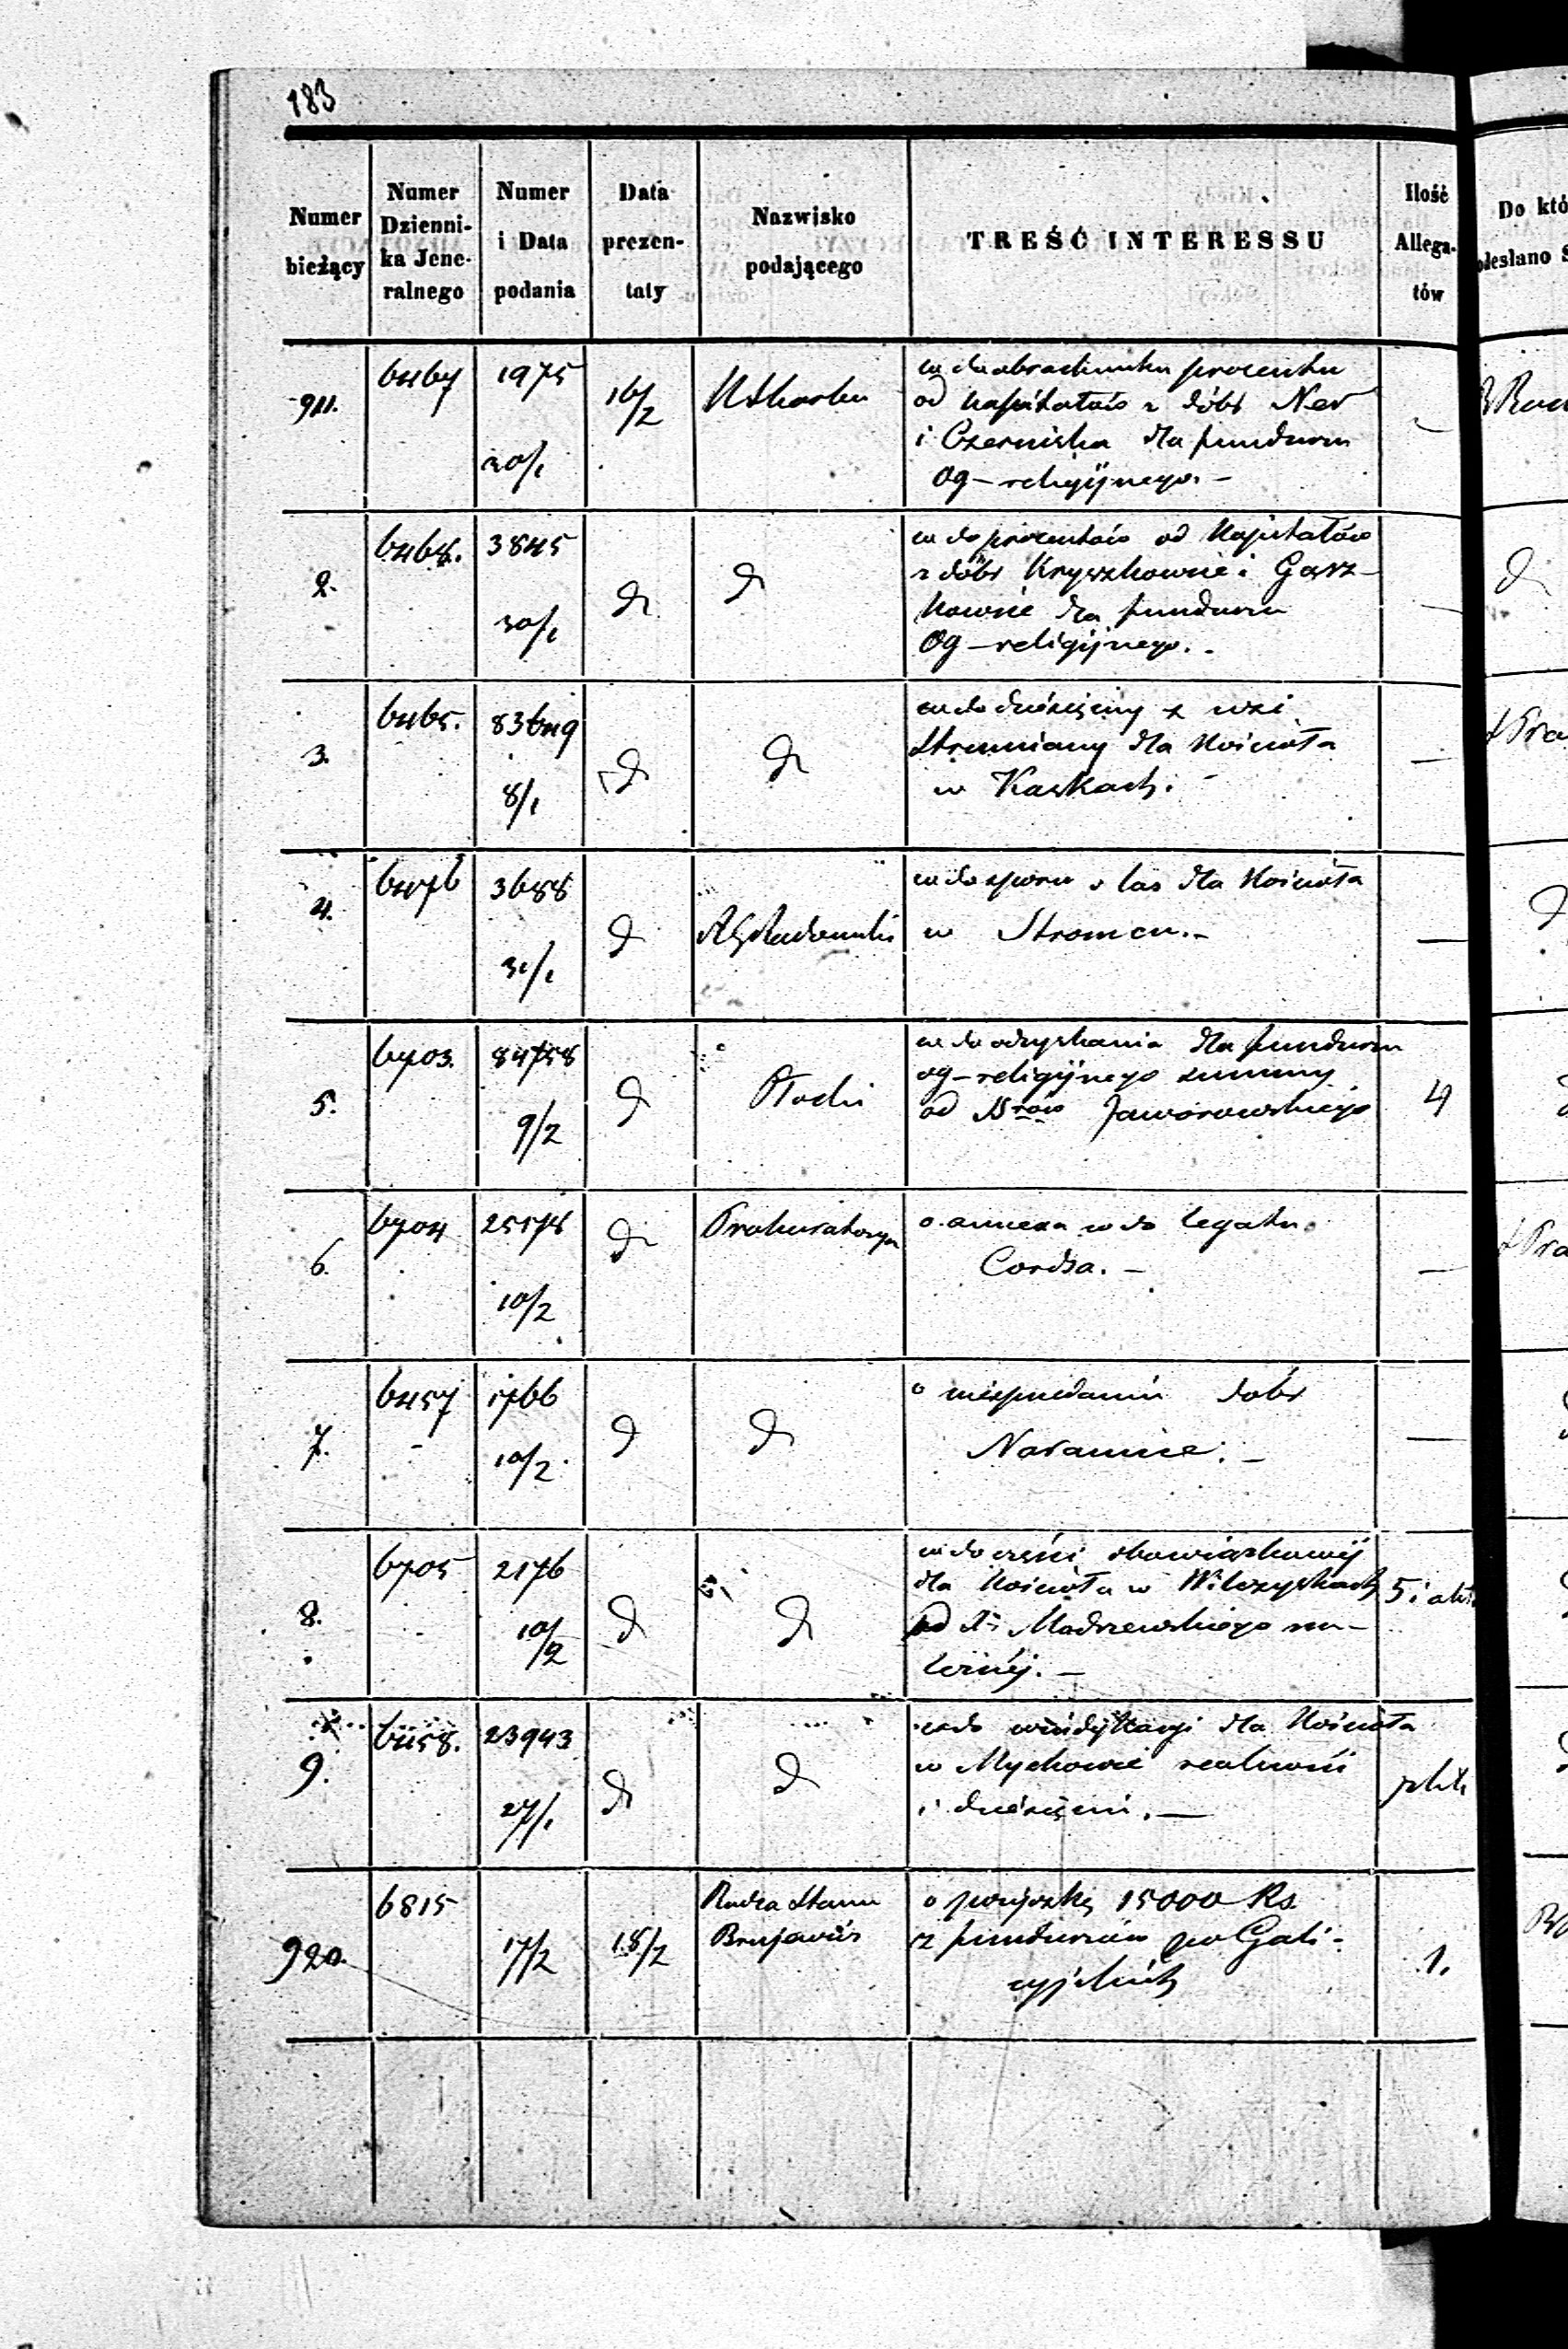 183
Numer bieżący
Numer Dzienni-ka Jene-ralnego
Numer i Data podania
Data prezen-taty
Nazwisko podającego
TREŚĆ INTERESSU
Ilość Allega-tów
Do któ
odesłano S
911. 6467 1975 30/1 16/2 KSkarbu
w do obrachunku procentu
od kapitałów z dóbr Ner
i Czerniska dla funduszu
og-religijnego. -
2. 6468. 3845 30/1 d d
w do procentów od Kapitałów
z dóbr Kryszkowie i Gasz-
kowie dla funduszu
og-religijnego. -
3. 6465. 83649 8/1 d d
w do dziesięciny z wsi
Strumiany dla Kościoła
w Kaskach. -
4. 6476 3688 31/1 d RGRadomski
w do sporu o las dla Kościoła
w Stromcu. -
5. 6703. 84758 9/2 d Płocki
w do odzyskania dla funduszu
og-religijnego summy
od Jaworowskiego
4
6. 6704 25578 10/2 d Prokuratorya
o annexa w do legatu
Cordsa. -
7. 6457 1766 10/2 d d
o niesprzedaniu dóbr
Naramice. -
8. 6705 2176 10/2 d d
w do części obowiązkowej
dla Kościoła w Wilczyskach
od Modrzewskiego na-
leżnej. -
5 i akta
9. 6458. 23943 27/1 d d
w do windykacyi dla Kościoła
w Mychowie realności
i dziesięcin. -
920. 6815 17/2 18/2
Radca Stanu
o pożyczkę 15000 Rs.
z funduszów po Gali-
cyjskich
1.